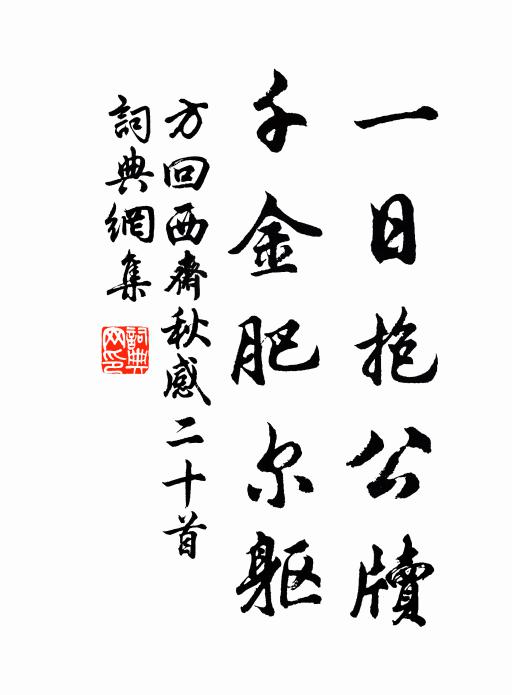 一日抱公牘
千金肥尔軀
方回西齋秋感二十首
詞典網集
詞典網印